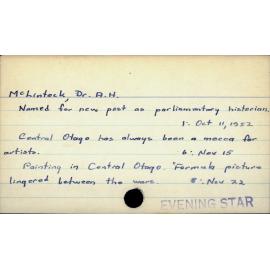 McLintock, Dr. A.H.
Named for new post as parliamentary historian.
1: Oct 11, 1952
Central Otago has always been a mecca for
artists. 6: Nov 15
Painting in Central Otago. "Formula picture
lingered between the wars. 8: Nov 22
EVENING STAR